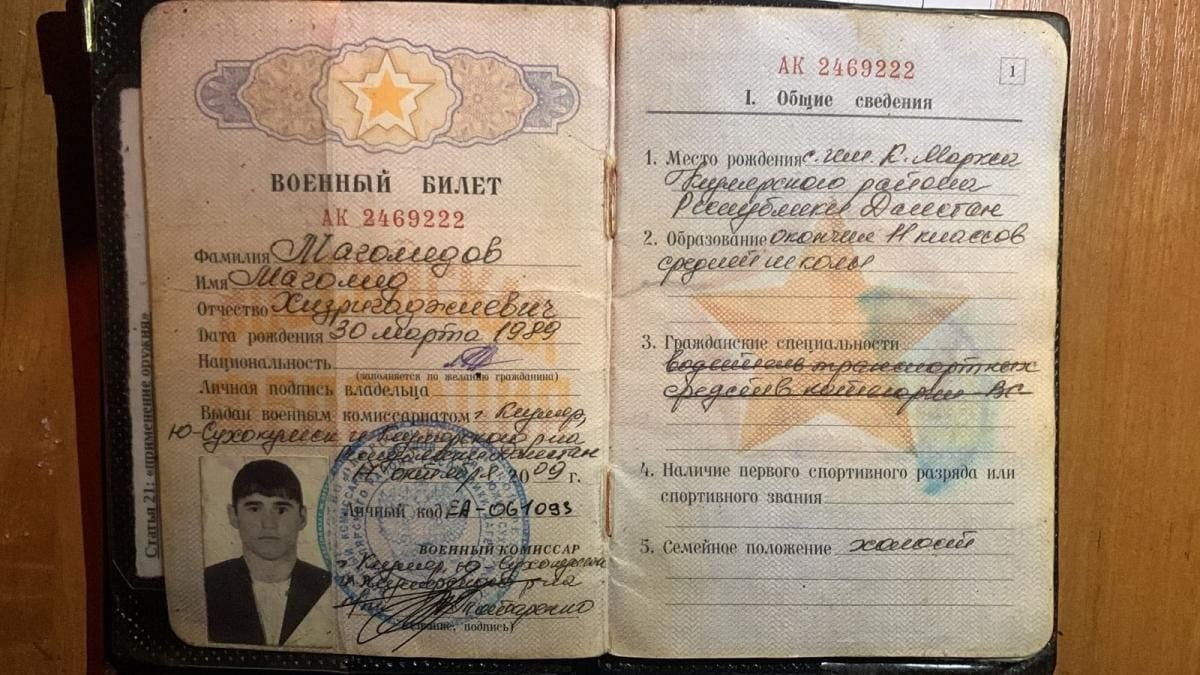 Статья 21: «применение оружия»
ВОЕННЫЙ БИЛЕТ
АК 2469222
Фамилия Магомедов
Имя Магомед
Отчество Хизригаджиевич
Дата рождения 30 марта 1989
Национальность
(заполняется по желанию гражданина)
Личная подпись владельца
Выдан военным комиссариатом г. Кизляр,
Ю-Сухокумск и Кизлярского р-на
Республики Дагестан
октября 2009 г.
Личный код ЕА-061093
ВОЕННЫЙ КОМИССАР
г. Кизляр, Ю-Сухокумска
и Кизлярского р-на
подпись)
АК 2469222
1
I. Общие сведения
1. Место рождения с. им. К. Маркса
Кизлярского района
Республики Дагестан
2. Образование окончил 11 классов
средней школы
3. Гражданские специальности
водитель транспортных
средств категории ВС
4. Наличие первого спортивного разряда или
спортивного звания
5. Семейное положение холост